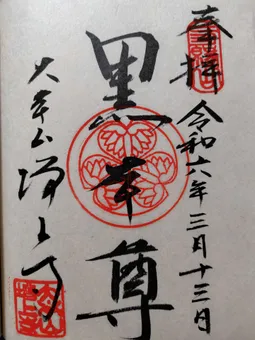 奉拝
令和六年三月十三日
黒本尊
大本山
増上寺